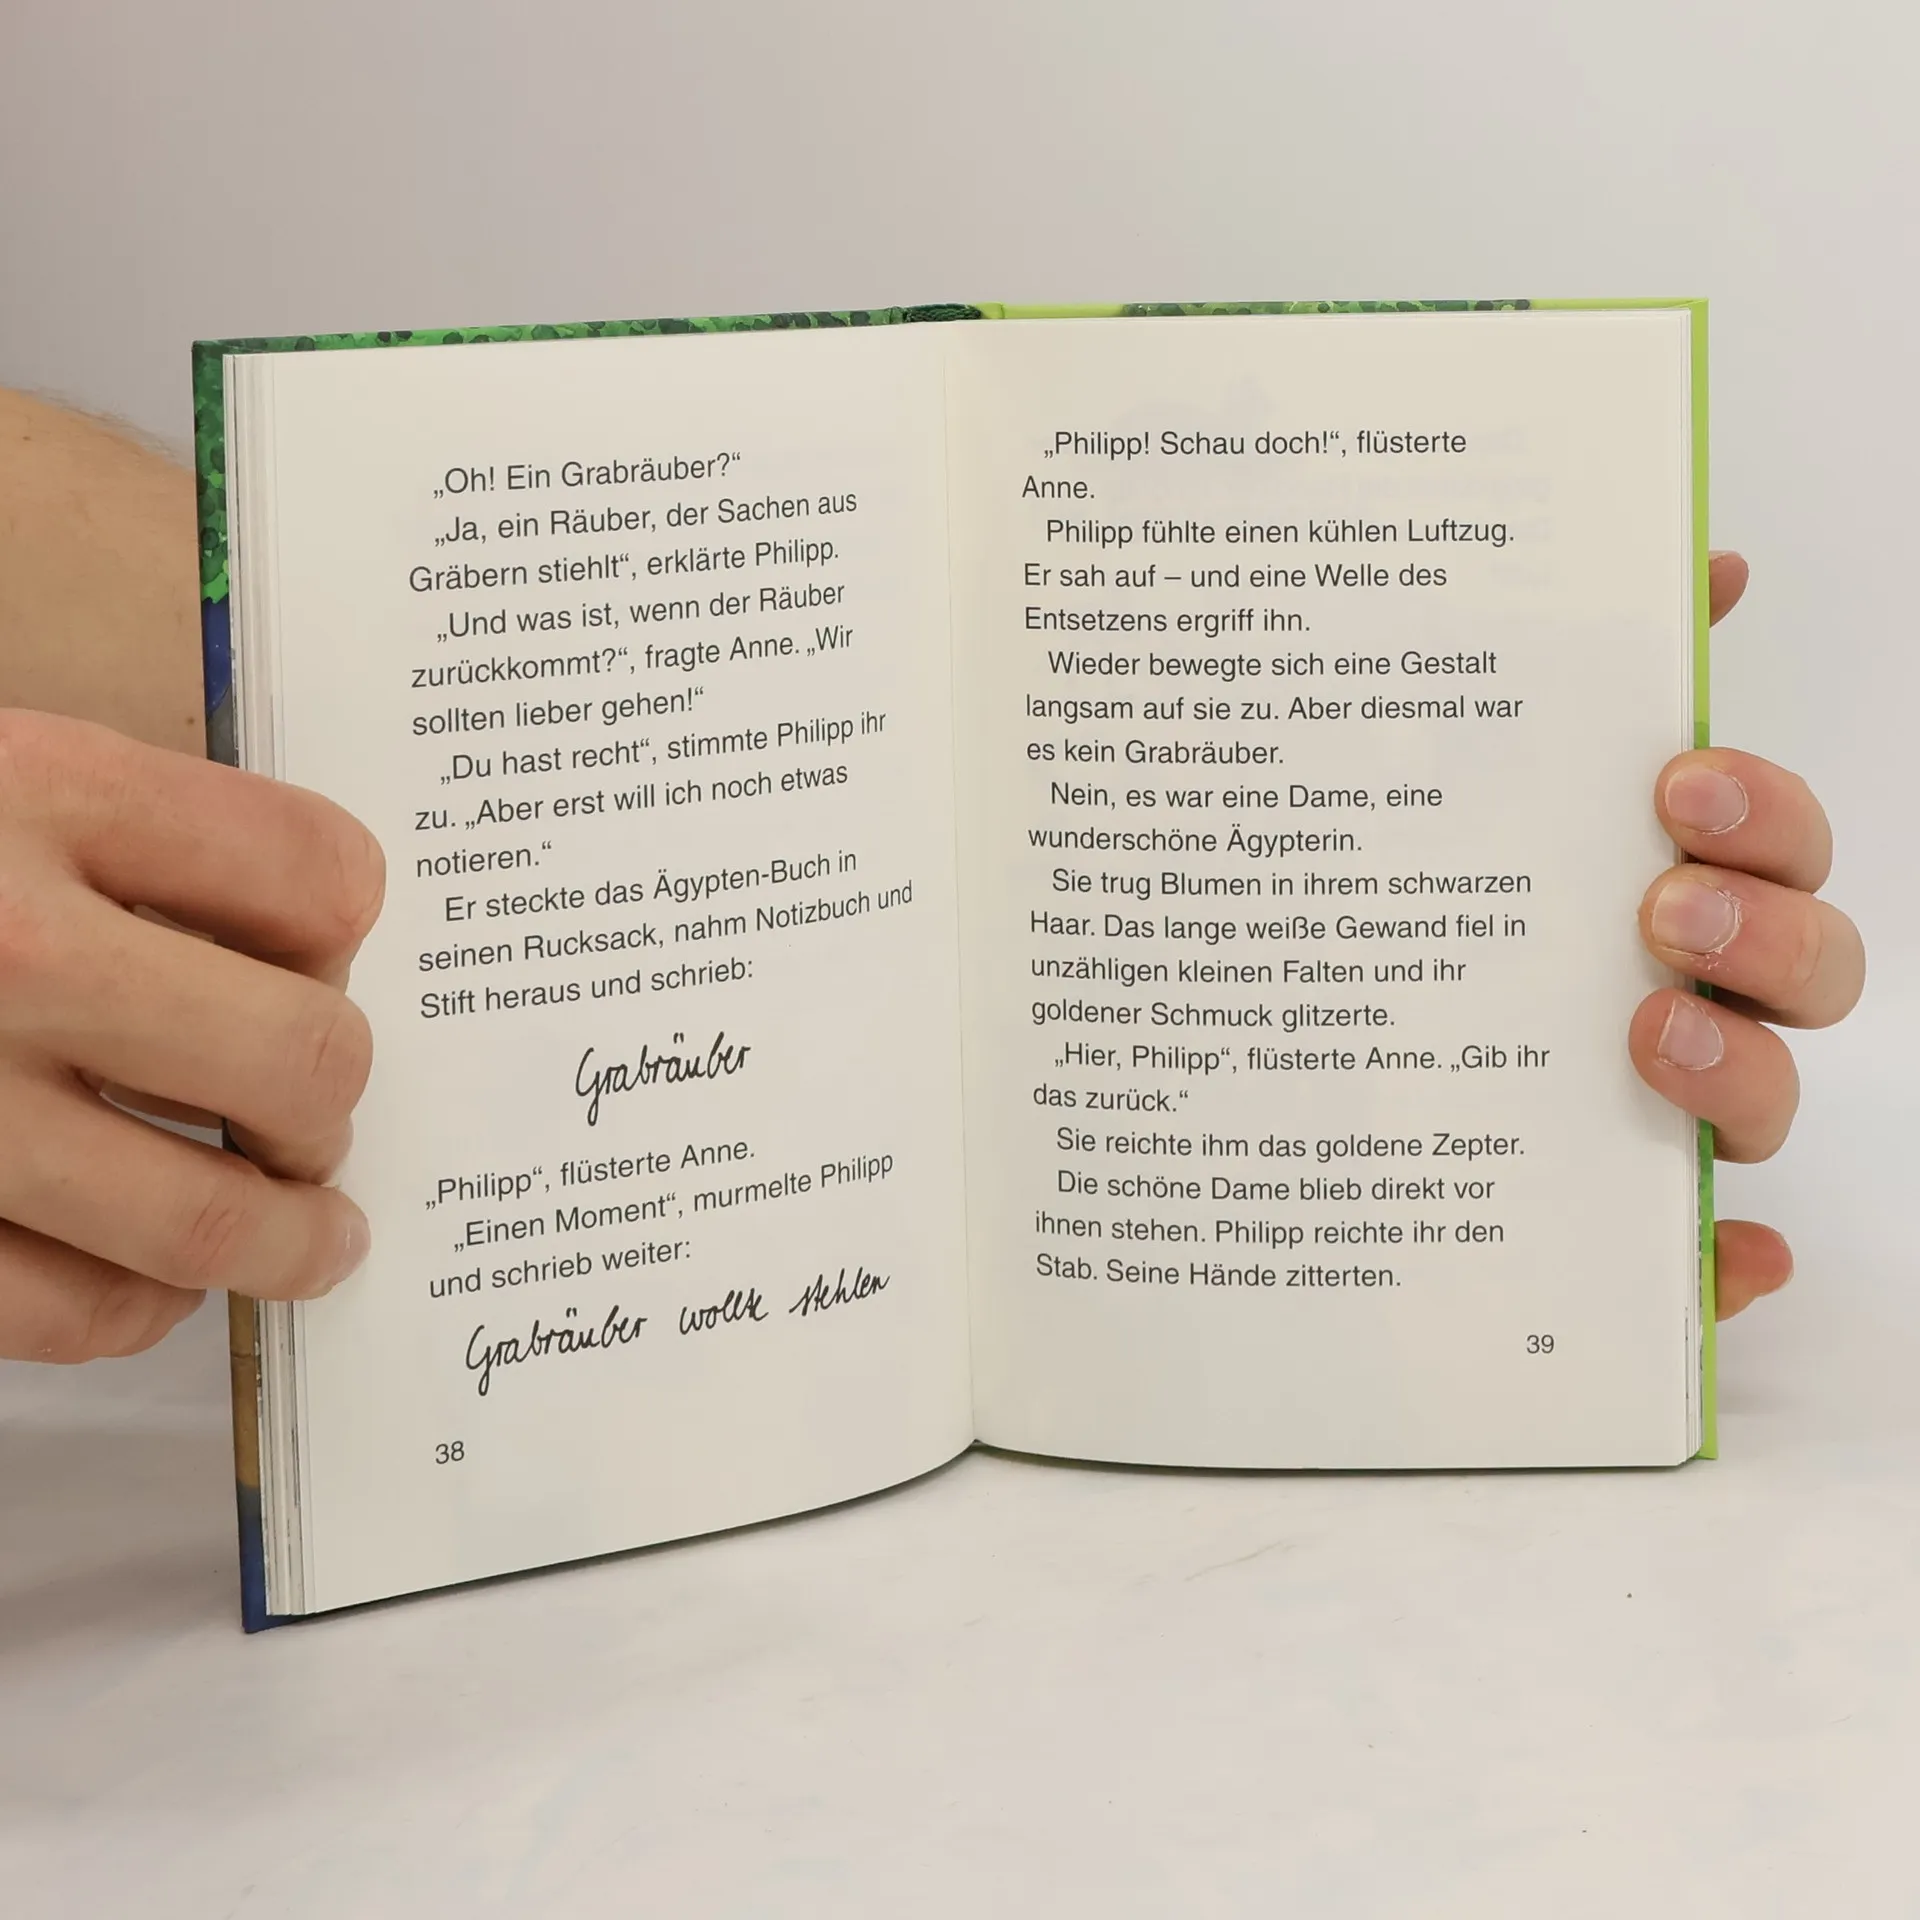 „Oh! Ein Grabräuber?“
„Ja, ein Räuber, der Sachen aus
Gräbern stiehlt“, erklärte Philipp.
„Und was ist, wenn der Räuber
zurückkommt?“, fragte Anne. „Wir
sollten lieber gehen!“
„Du hast recht“, stimmte Philipp ihr
zu. „Aber erst will ich noch etwas
notieren.“
Er steckte das Ägypten-Buch in
seinen Rucksack, nahm Notizbuch und
Stift heraus und schrieb:
Grabräuber
„Philipp“, flüsterte Anne.
„Einen Moment“, murmelte Philipp
und schrieb weiter:
Grabräuber wollte stehlen
38
„Philipp! Schau doch!“, flüsterte
Anne.
Philipp fühlte einen kühlen Luftzug.
Er sah auf – und eine Welle des
Entsetzens ergriff ihn.
Wieder bewegte sich eine Gestalt
langsam auf sie zu. Aber diesmal war
es kein Grabräuber.
Nein, es war eine Dame, eine
wunderschöne Ägypterin.
Sie trug Blumen in ihrem schwarzen
Haar. Das lange weiße Gewand fiel in
unzähligen kleinen Falten und ihr
goldener Schmuck glitzerte.
„Hier, Philipp“, flüsterte Anne. „Gib ihr
das zurück.“
Sie reichte ihm das goldene Zepter.
Die schöne Dame blieb direkt vor
ihnen stehen. Philipp reichte ihr den
Stab. Seine Hände zitterten.
39